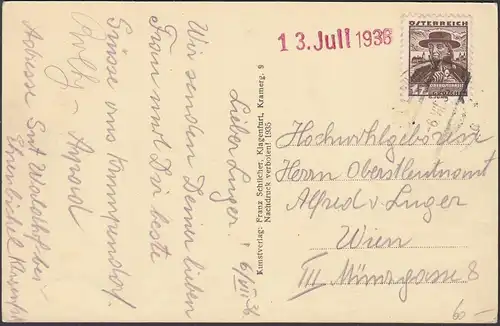 13. Juli 1936
ÖSTERREICH
Lieber Luger! 6/VII 36
Wir senden Deiner lieben
Frau und Dir beste
Grüsse aus Krumpendorf.
Adresse Gut Waldhof bei
Kunstverlag: Franz Schilcher, Klagenfurt, Kramerg. 9
Nachdruck verboten! 1935
Hochwohlgeboren
Herrn Oberstleutnant
Alfred v. Luger
Wien
III Münzgasse 8
60-